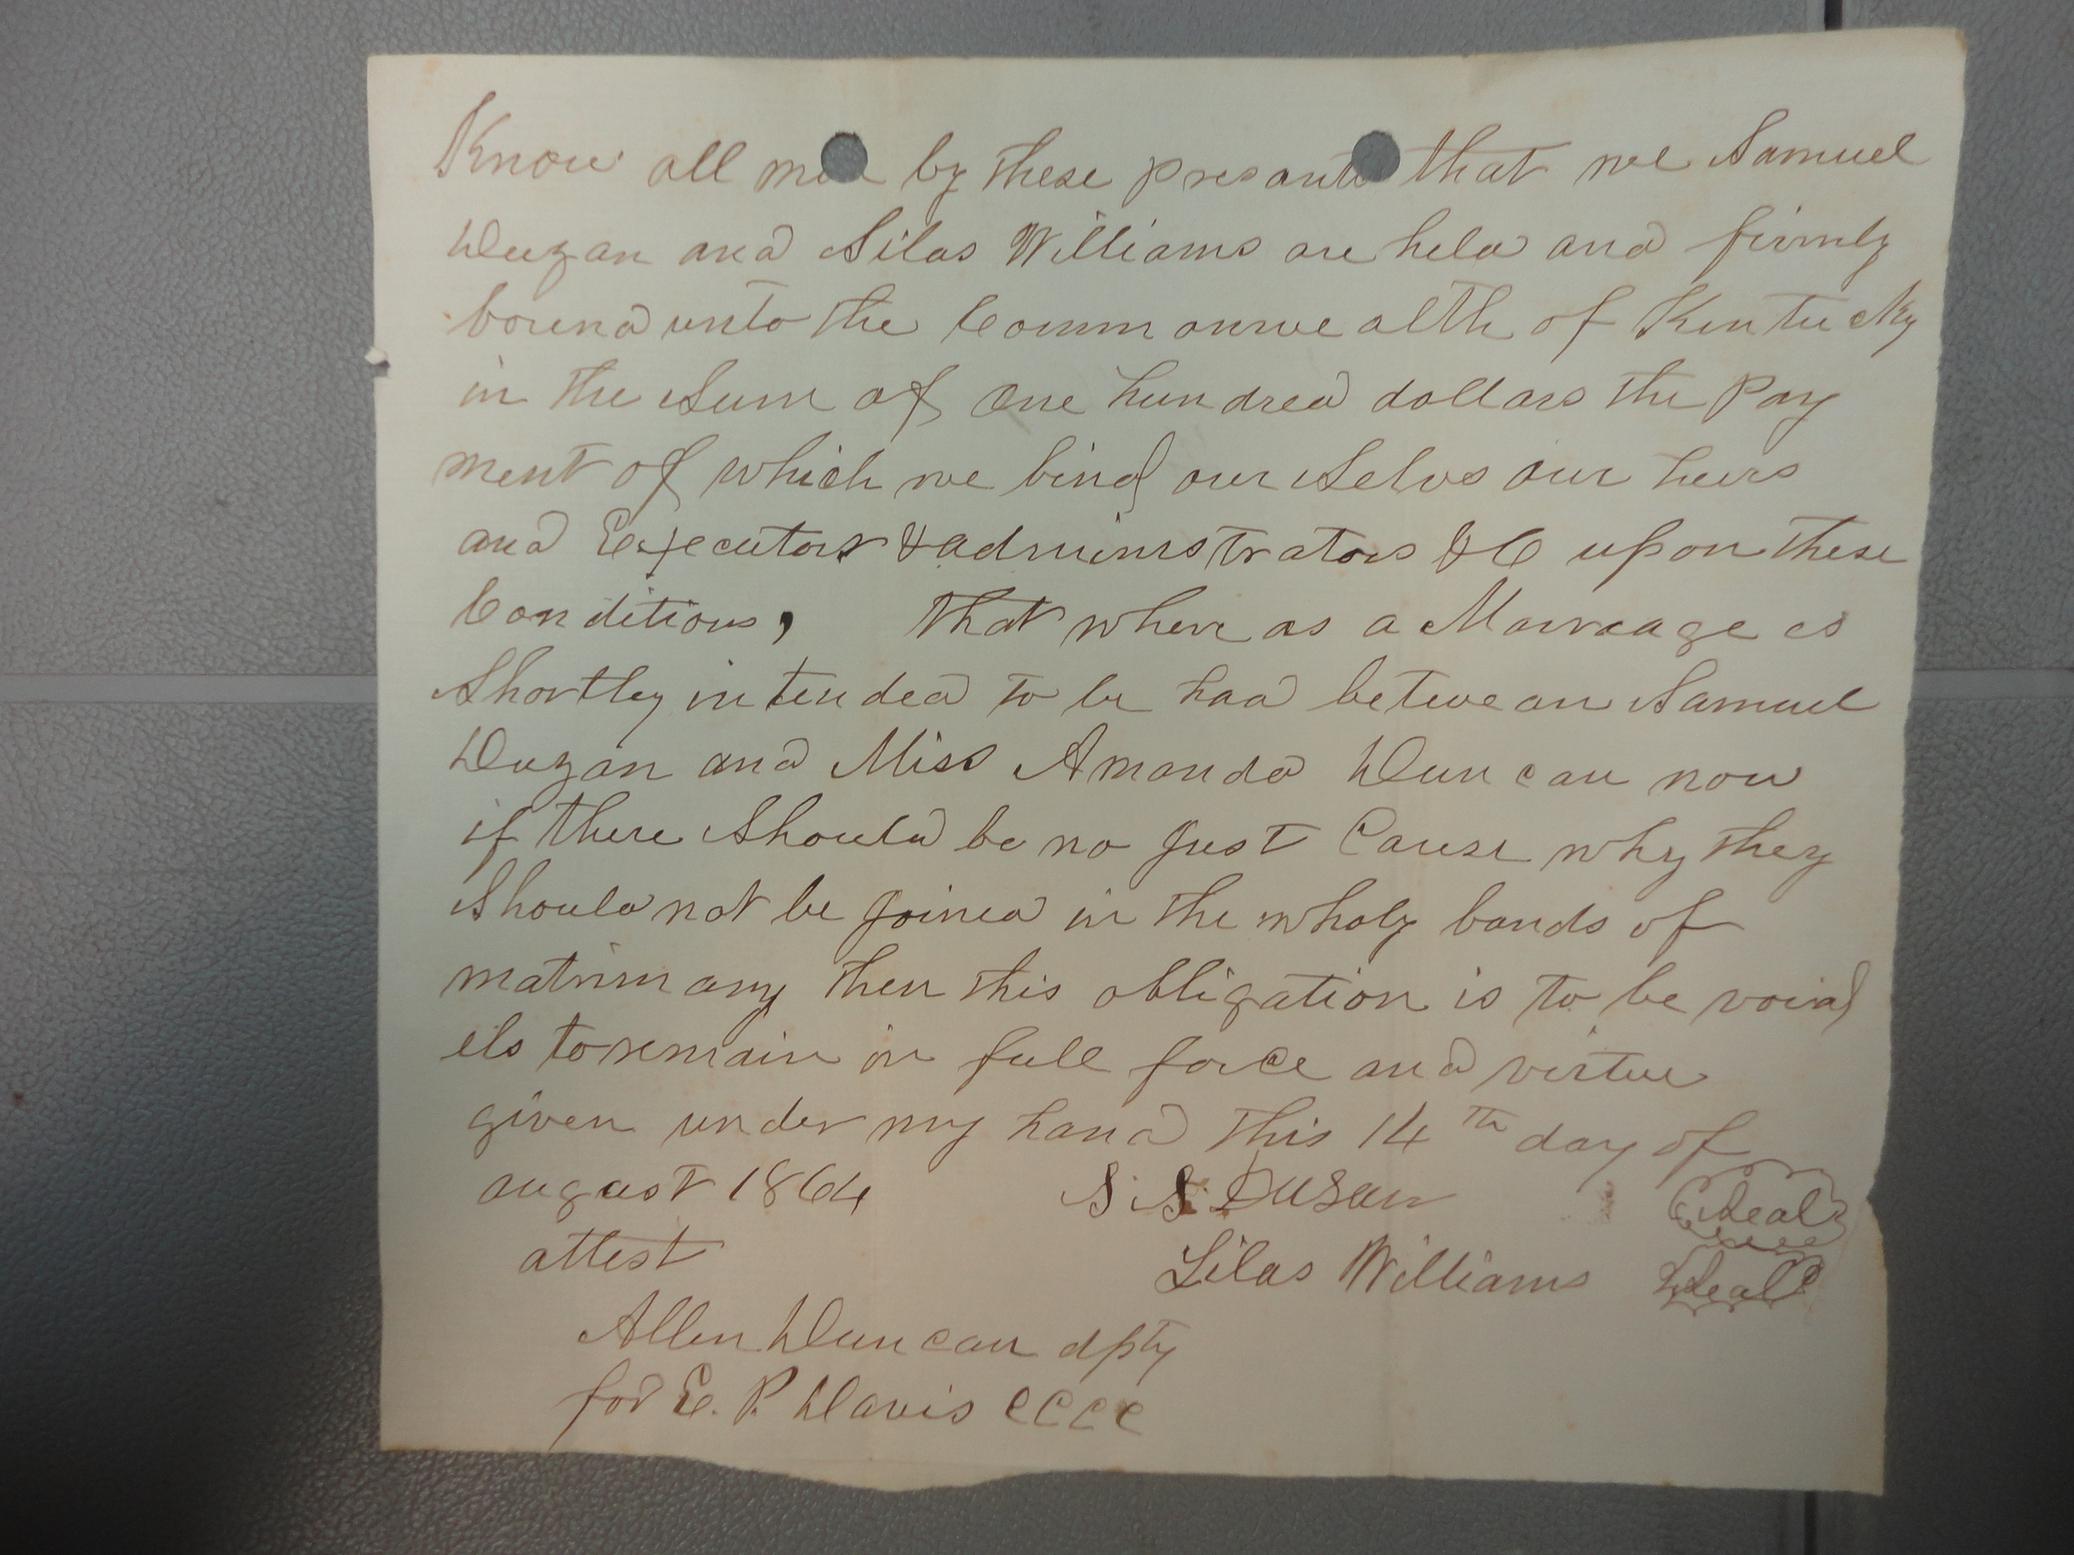 Know all men by these presants that we Samuel
Duzan and Silas Williams are held and firmly
bound unto the Commonwealth of Kentucky
in the Sum of One hundred dollars the Pay
ment of which we bind our Selvs our heirs
and Executors & administrators &C upon these
Conditions, that where as a Marraage is
Shortley intended to be had betwean Samuel
Duzan and Miss Amanda Duncan now
if there Should be no Just Cause why they
Should not be Joined in the wholy bands of
matrimany then this obligation is to be void
els to remain in full force and virtue
given under my hand this 14th day of
august 1864 S. S. Dusan Seal
attest Silas Williams Seal
Allen Duncan dpty
for E. P. Davis CCCC